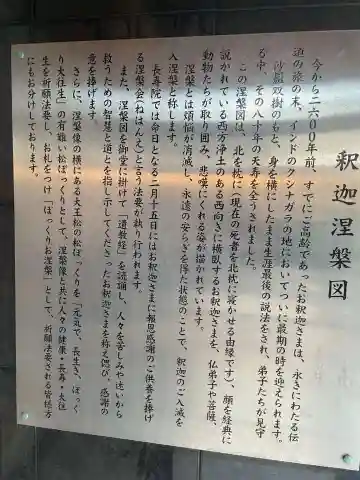 釈迦涅槃図
今から二六〇〇年前、すでにご高齢であったお釈迦さまは、永きにわたる伝
道の旅の末、インドのクシナガラの地においてついに最期の時を迎えられます。
沙羅双樹のもと、身を横にしたまま生涯最後の説法をされ、弟子たちが見守
る中、その八十年の天寿を全うされました。
この涅槃図は、北を枕に（現在の死者を北枕に寝かせる由縁です）、顔を経典に
説かれている西方浄土のある西向きに横臥するお釈迦さまを、仏弟子や菩薩、
動物たちが取り囲み、悲嘆にくれる姿が描かれています。
涅槃とは煩悩が消滅し、永遠の安らぎを得た状態のことで、釈迦のご入滅を
入涅槃と称します。
長寿院では命日となる二月十五日にはお釈迦さまに報恩感謝のご供養を捧げ
る涅槃会（ねはんえ）と言う法要が執り行われます。
また、涅槃図を御堂に掛けて「遺教経」を読誦し、人々を苦しみや迷いから
救うための智慧と道とを指し示してくださったお釈迦さまを称え偲び、感謝の
意を捧げます。
さらに、涅槃像の横にある大王松の松ぼっくりを「元気で、長生き、ぽっく
り大往生」の有難い松ぼっくりとして、涅槃像と共に人々の健康・長寿・大往
生を祈願法要し、お札をつけ「ぽっくりお涅槃」として、祈願法要される皆様方
にもお分けしております。